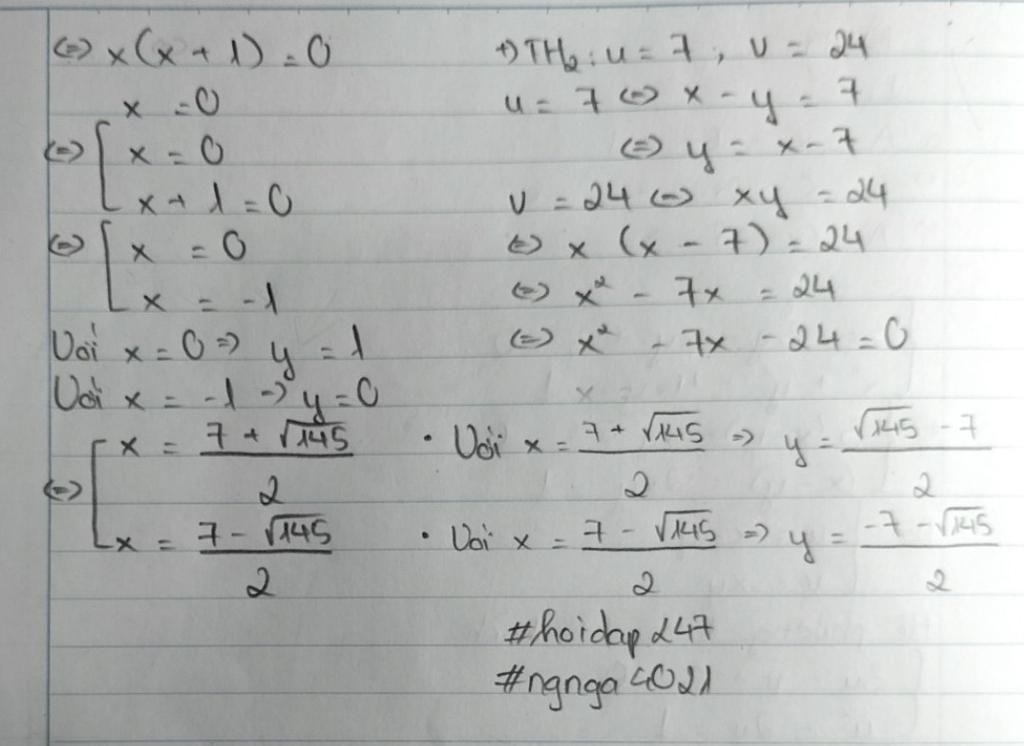 ⇔ x(x + 1) = 0
x = 0
⇔ [ x = 0
x + 1 = 0
⇔ [ x = 0
x = -1
Với x = 0 ⇒ y = 1
Với x = -1 ⇒ y = 0
+) TH₂: u = 7, v = 24
u = 7 ⇔ x - y = 7
⇔ y = x - 7
v = 24 ⇔ xy = 24
⇔ x (x - 7) = 24
⇔ x² - 7x = 24
⇔ x² - 7x - 24 = 0
⇔ [ x = (7 + √145)/2 • Với x = (7 + √145)/2 ⇒ y = (√145 - 7)/2
x = (7 - √145)/2 • Với x = (7 - √145)/2 ⇒ y = (-7 - √145)/2
#hoidap247
#ngnga4021